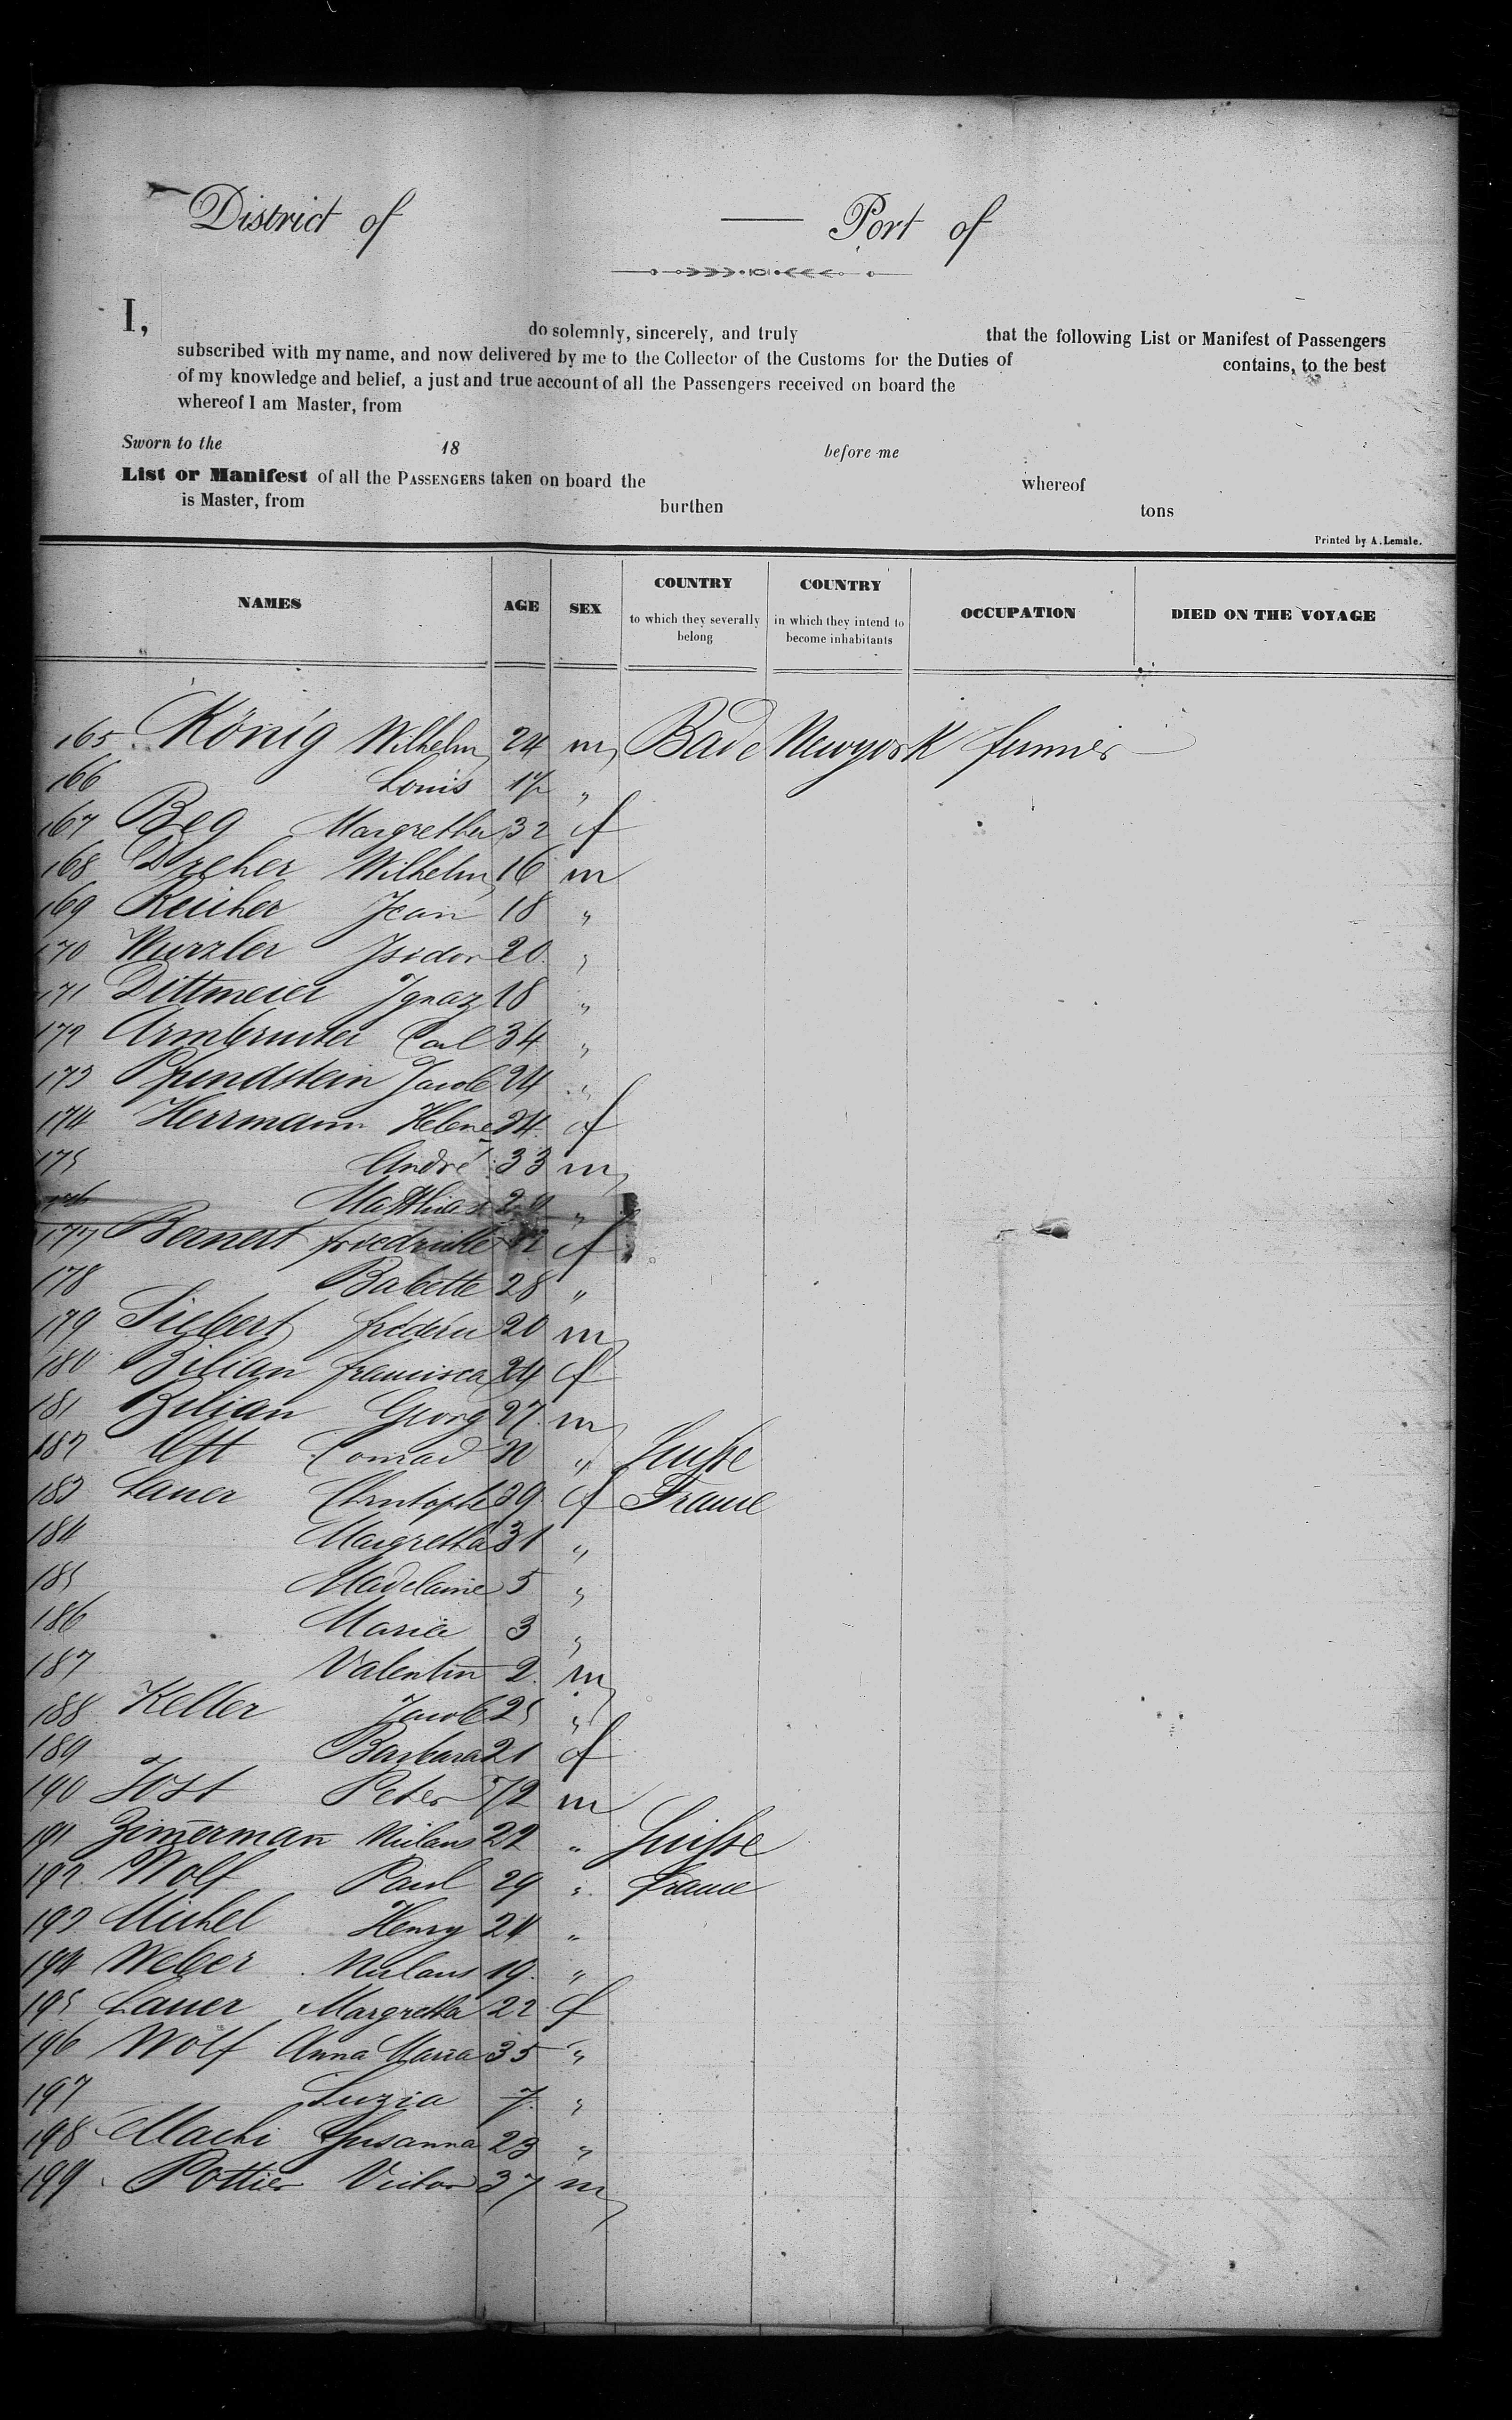 District of — Port of
I, do solemnly, sincerely, and truly that the following List or Manifest of Passengers
subscribed with my name, and now delivered by me to the Collector of the Customs for the Duties of contains, to the best
of my knowledge and belief, a just and true account of all the Passengers received on board the
whereof I am Master, from
Sworn to the 18 before me
List or Manifest of all the PASSENGERS taken on board the whereof
is Master, from burthen tons
Printed by A. Lemale.
NAMES AGE SEX COUNTRY to which they severally belong COUNTRY in which they intend to become inhabitants OCCUPATION DIED ON THE VOYAGE
165 König Wilhelm 24 m Bade Newyork
166 Louis 17 "
167 Beg Margretha 32 f
168 Dreher Wilhelm 16 m
169 Jean 18 "
170 Wurzler Isidor 20 "
171 Dittmeier Ignaz 18 "
172 Armbruster Carl 34 "
173 Pfundstein Jacob 24 "
174 Herrmann Helene 24 f
175 André 33 m
176 Matthias "
177 Bernert f
178 Babette 28 "
179 Siebert 20 m
180 Bilian Francisca 24 f
181 Bilian Georg 27 m
182 Ott Conrad "  Suisse
183 Lauer Christophe f France
184 Margretha 31 "
185 Madelaine 5 "
186 Maria 3 "
187 Valentin 2 m
188 Keller Jacob 25 "
189 Barbara 21 f
190 Jost Peter m
191 Zim̄erman̄ 22 " Suisse
192 Wolf Paul 29 " france
193 Michel Henry 24 "
194 Weber 19 "
195 Lauer Margretha 22 f
196 Wolf Anna Maria 35 "
197 Luzia 7 "
198 Susanna 23 "
199 Pottier Victor 37 m